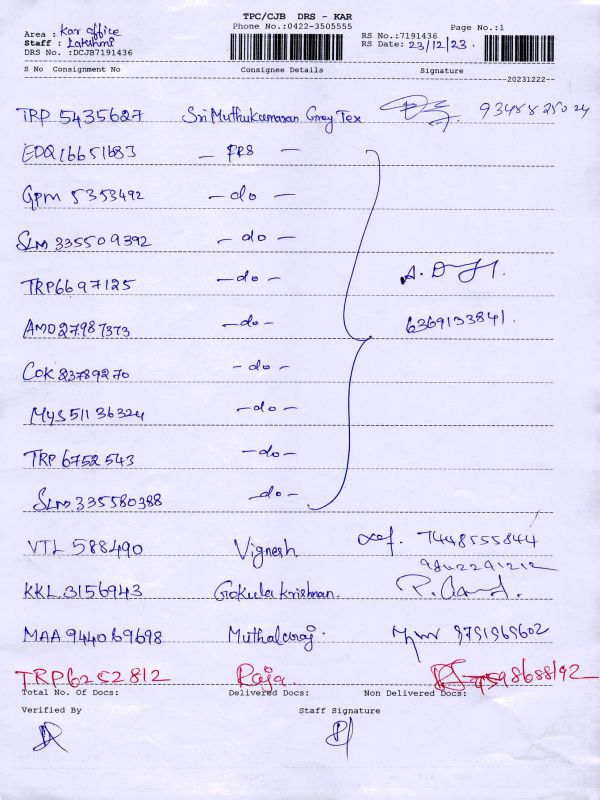 TPC/CJB DRS - KAR
Phone No.:0422-3505555
Page No.:1
Area : Kar office
Staff : Lakshmi
DRS No. :DCJB7191436
RS No.:7191436
RS Date: 23/12/23.
S No Consignment No Consignee Details Signature
20231222--
TRP 5435627 Sri Muthukumaran Grey Tex
EDQ16651683 - PRS
GPM 5353492 - do -
SLM 335509392 - do -
TRP6697125 - do -
AMD27987373 - do - 6369133841.
COK 23789270 - do -
MYS 51136324 - do -
TRP 6752543 - do -
SLM 335580388 - do -
VTL 588490 Vignesh 7448555844
9842291212
KKL 3156943 Gokula Krishnan.
MAA 944069698 Muthalaraj. 9791969602
TRP6252812 Raja.
Total No. Of Docs: Delivered Docs: Non Delivered Docs:
Verified By Staff Signature